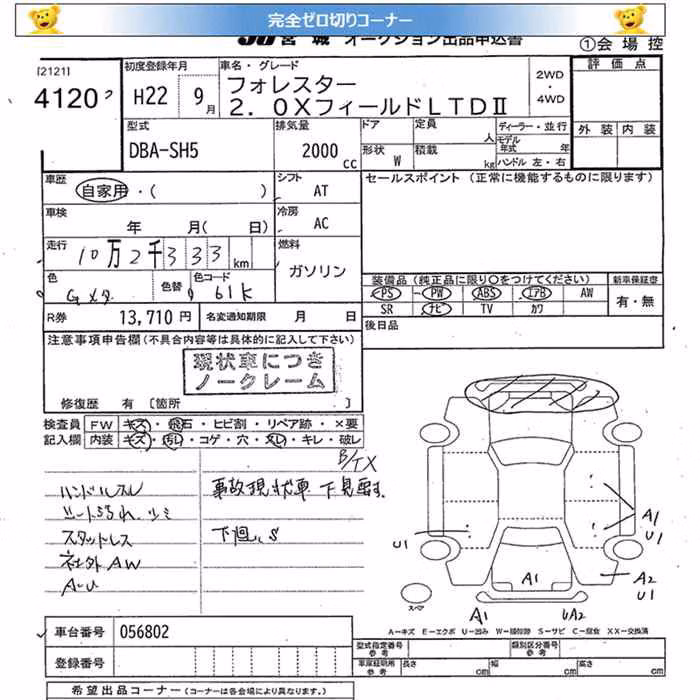 完全ゼロ切りコーナー
JU宮城 オークション出品申込書
①会場控
[2121]
4120
初度登録年月
H22 9月
車名・グレード
フォレスター
2.0XフィールドLTDⅡ
2WD・4WD
評価点
外装 内装
型式
DBA-SH5
排気量
2000cc
ドア
形状 W
定員 人
積載 kg
ディーラー・並行
モデル年式 年
ハンドル 左・右
車歴
自家用・( )
シフト AT
セールスポイント (正常に機能するものに限ります)
車検 年 月( 日)
冷房 AC
走行 10万2千333km
燃料
ガソリン
色 Gメタ
色替
色コード 61K
装備品(純正品に限り○をつけてください)
PS・PW ABS エアB AW
SR ナビ TV カワ
新車保証書
有・無
R券 13,710円
名変通知期限 月 日
後日品
注意事項申告欄(不具合内容等は具体的に記入して下さい)
現状車につき
ノークレーム
修復歴 有 〔箇所 〕
検査員記入欄
FW キズ・飛石・ヒビ割・リペア跡・×要
内装 キズ・汚レ・コゲ・穴・スレ・キレ・破レ
B/TX
ハンドルスレ
事故現状車 下見要す
シート汚れ、シミ
スタッドレス
下廻、S
社外AW
A・U
A1
U1
U1
A2
U1
A1
A1
UA2
スペア
A-キズ E-エクボ U-凹み W-補修跡 S-サビ C-腐食 XX-交換済
車台番号 056802
型式指定番号 参考
類別区分番号 参考
登録番号
車庫証明用 参考
長さ cm
幅 cm
高さ cm
希望出品コーナー(コーナーは各会場により異なります。)